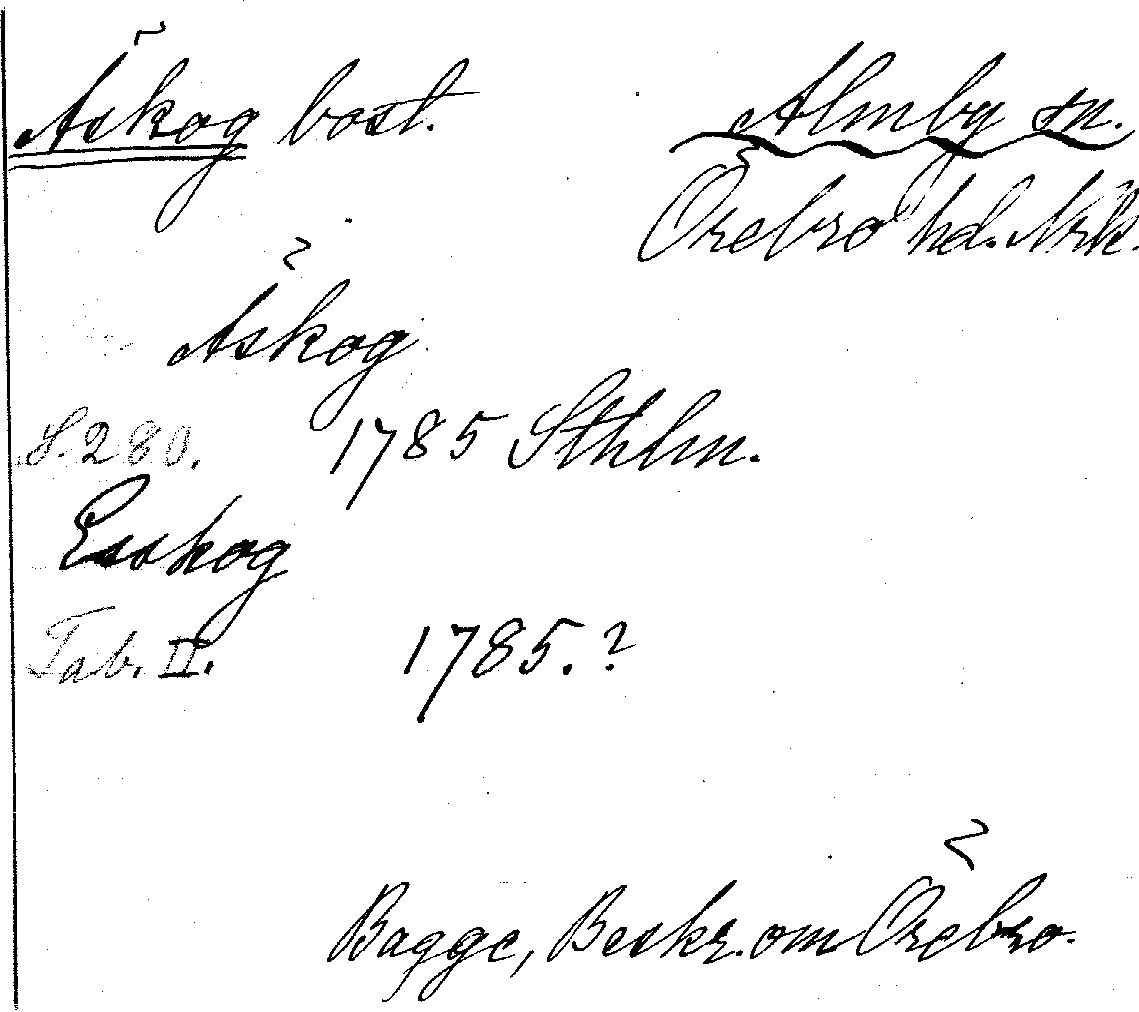 Äskog bost. Almby sn.
Örebro hd. Nrk.
Äskog
S. 280. 1785 Sthlm.
Esskog
Tab. II. 1785.?
Bagge, Beskr. om Örebro.